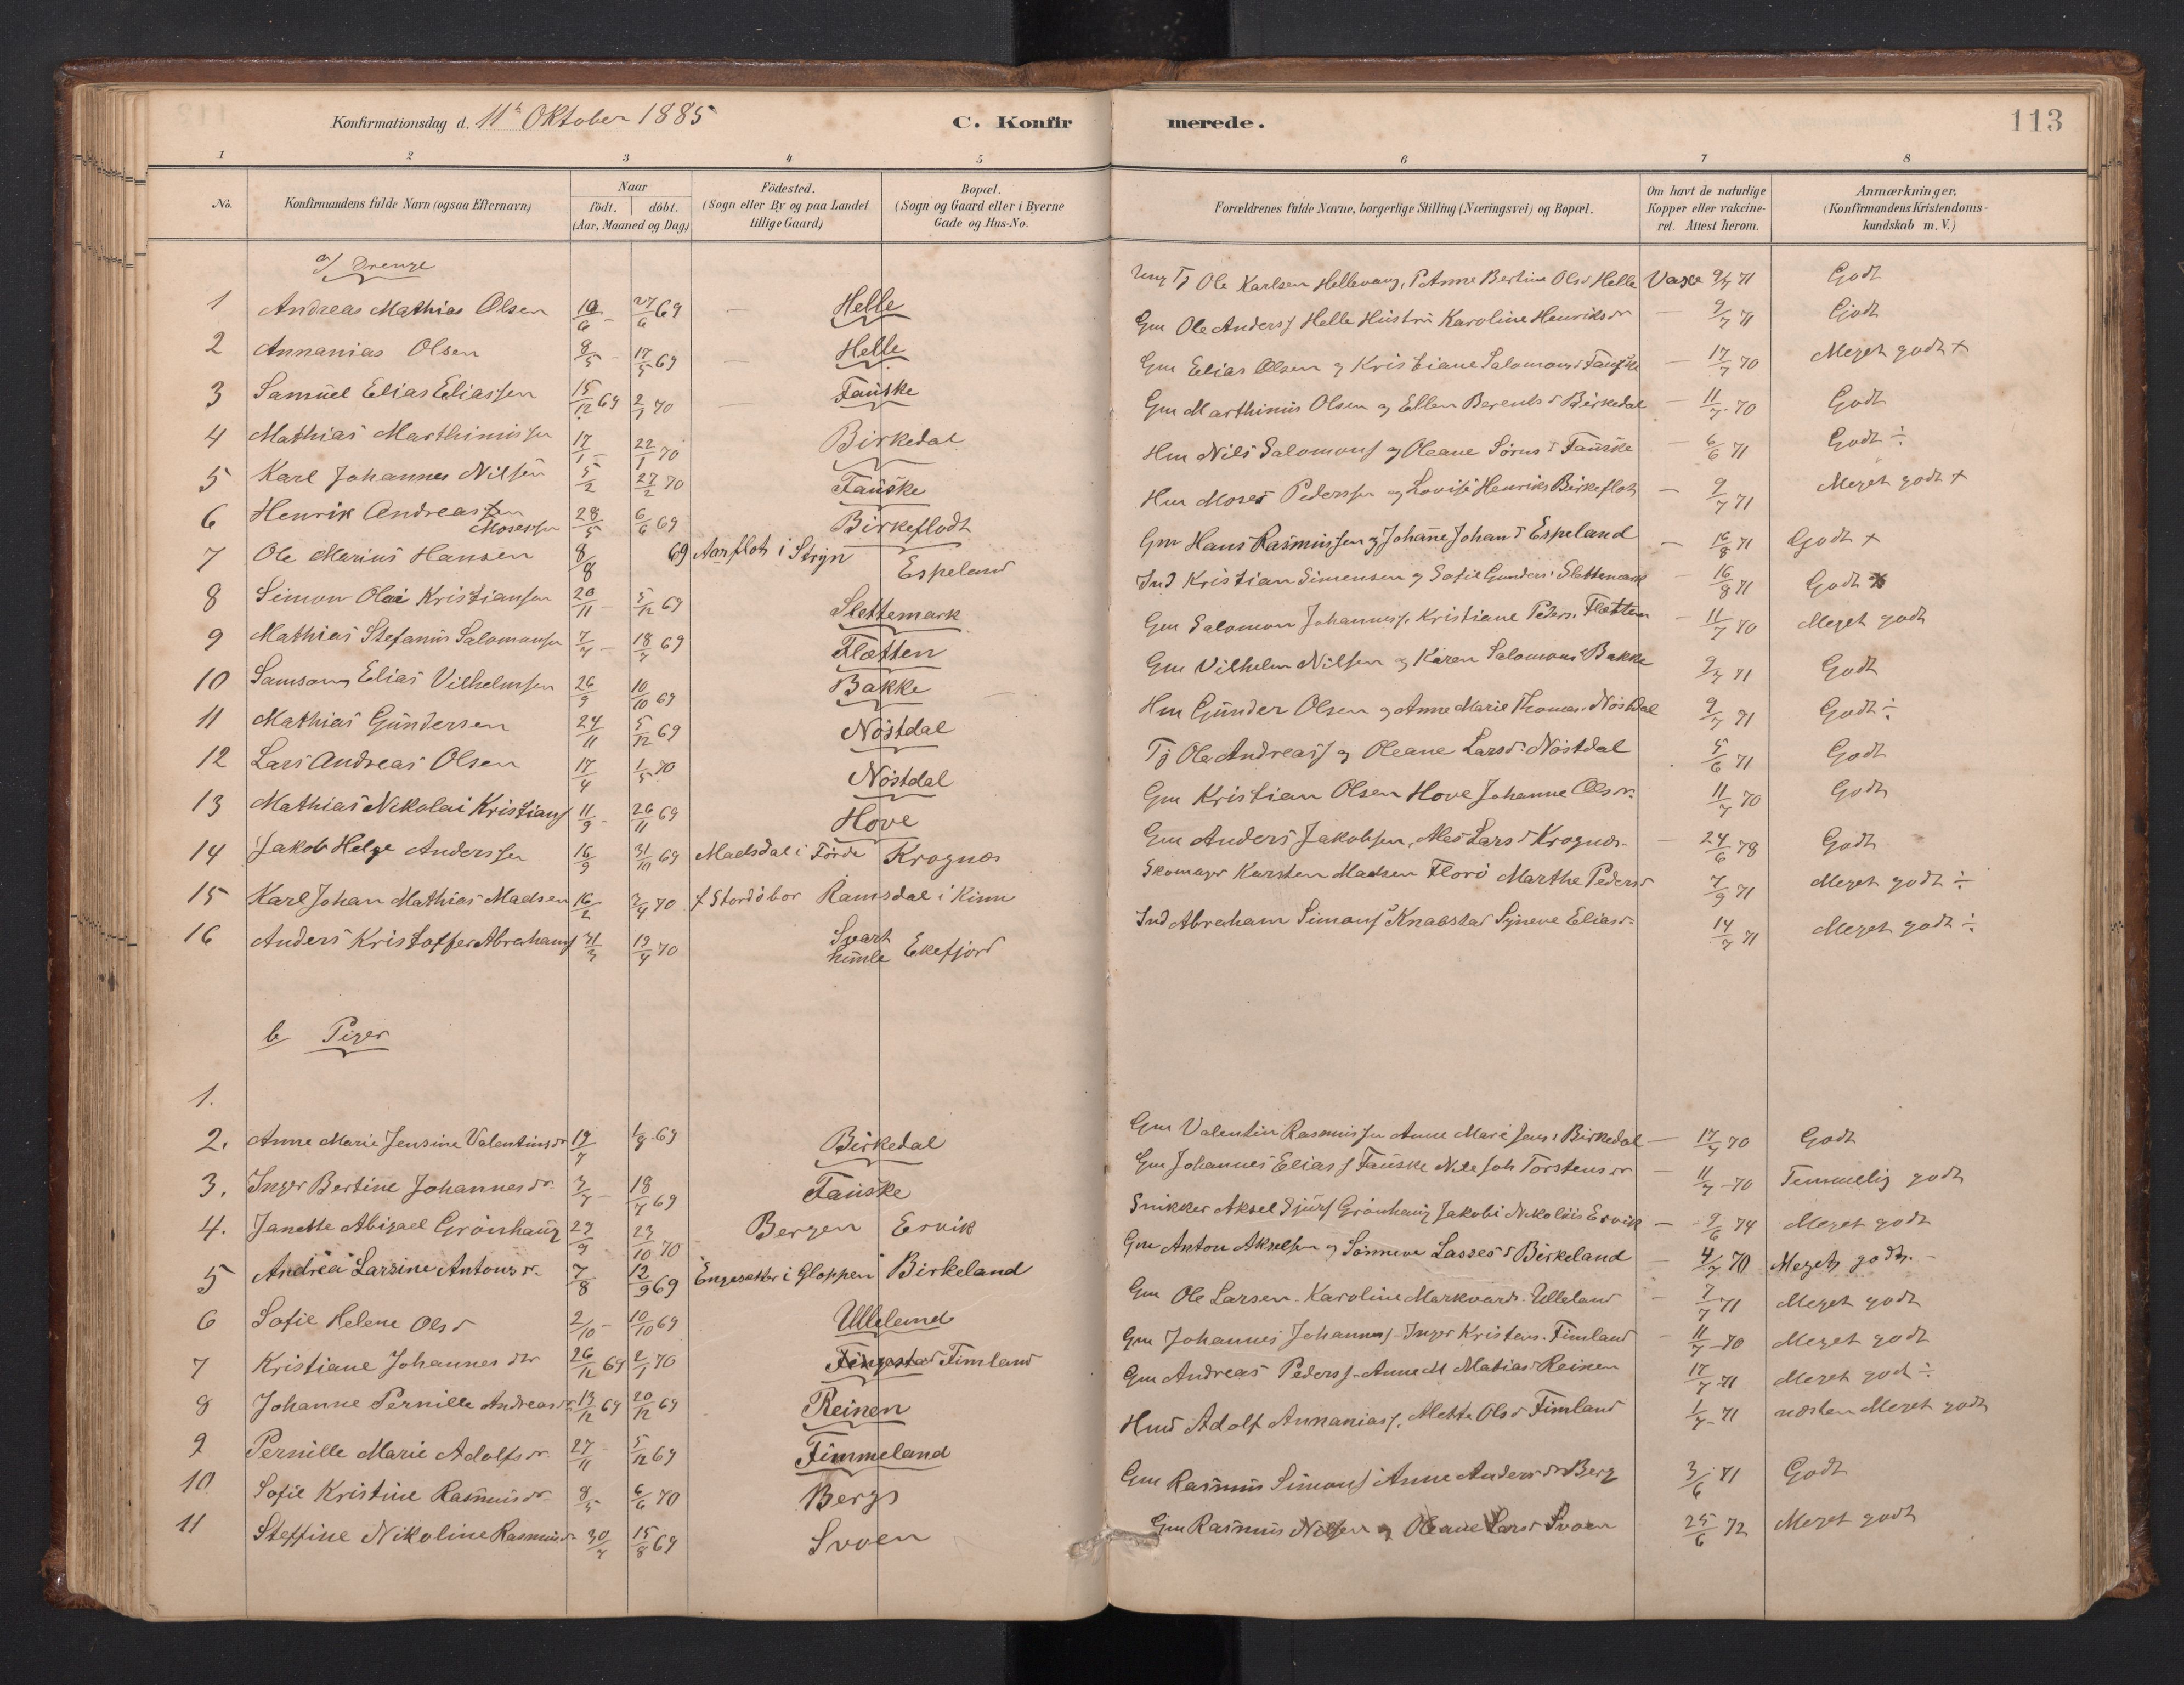 Konfirmationsdag d. 11te Oktober 1885 C. Konfirmerede. 113
1 2 3 4 5 6 7 8
No. Konfirmandens fulde Navn (ogsaa Efternavn) Naar Födt. döbt. (Aar, Maaned og Dag) Födested. (Sogn eller By og paa Landet tillige Gaard) Bopæl. (Sogn og Gaard eller i Byerne Gade og Hus-No. Forældrenes fulde Navne, borgerlige Stilling (Næringsvei) og Bopæl. Om havt de naturlige Kopper eller vakcineret. Attest herom. Anmærkninger. (Konfirmandens Kristendomskundskab m. V.)
a/ Drenge
1 Andreas Mathias Olsen 10/6 - 27/6 69 — Helle Ung Tj Ole Karlsen Hellevang, P Anne Bertine Olsd Helle Vaxc 9/7 71 Godt
2 Annanias Olsen 8/5 - 17/5 69 — Helle Gm Ole Anders s Helle Hustru Karoline Henriksdr — 9/7 71 Godt
3 Samuel Elias Eliassen 15/12 69 2/1 70 — Fauske Gm Elias Olsen og Kristiane Salomonsd Fauske — 17/7 70 Meget godt +
4 Mathias Marthinussen 17/1 - 22/1 70 Birkedal Gm Marthinus Olsen og Ellen Berentsd Birkedal — 11/7 70 Godt
5 Karl Johannes Nilsen 5/2 27/2 70 Fauske Hm Nils Salomons og Oleane Sörnsd Fauske — 6/6 71 Godt ÷
6 Henrik Andreassen Mosessen 28/5 6/6 69 Birkeflodt Hm Moses Pederssen og Lovise Henriks Birkeflot — 9/7 71 Meget godt +
7 Ole Marius Hansen 8/8 69 Aarflot i Stryn Espeland Gm Hans Rasmussen og Johane Johansd Espeland — 16/8 71 Godt +
8 Simon Olai Kristiansen 20/11 - 5/12 69 Slettemark Ind Kristian Simensen og Sofie Gunders Slettemark — 16/8 71 Godt
9 Mathias Stefanus Salomonsen 7/7 - 18/7 69 Flætten Gm Salomon Johanness, Kristiane Peders. Flætten — 11/7 70 Meget godt
10 Samson Elias Vilhelmsen 26/9 10/10 69 Bakke Gm Vilhelm Nilsen og Karen Salomonsd Bakke 9/7 71 Godt
11 Mathias Gundersen 24/11 5/12 69 Nöstdal Hm Gunder Olsen og Anne Marie Thomas. Nöstdal 9/7 71 Godt ÷
12 Lars Andreas Olsen 17/4 1/5 70 Nöstdal Tj Ole Andreass og Oleane Larsd. Nöstdal 5/6 71 Godt
13 Mathias Nikolai Kristians 11/9 - 26/11 69 Hove Gm Kristian Olsen Hove Johanne Olsdr. 11/7 70 Godt
14 Jakob Helge Anderssen 16/9 31/10 69 Maelsdal i Förde Krognæs Gm Anders Jakobsen, Ales Larsd Krognæs — 24/6 78 Godt
15 Karl Johan Mathias Madsen 16/2 3/4 70 f Stordöbor Ramsdal i Kinn Skomager Karsten Madsen Florö Marthe Pedersd 7/9 71 Meget godt ÷
16 Anders Kristoffer Abrahams 31/3 19/4 70 Svarthumle Ekefjord Ind Abraham Simons Knabstad Synneve Eliasdr. 14/7 71 Meget godt ÷
b/ Piger
1.
2. Anne Marie Jensine Valentinsdr 19/7 1/8 69 Birkedal Gm Valentin Rasmussen Anne Marie Jens. Birkedal — 17/7 70 Godt
3. Inger Bertine Johannesdr. 3/7 - 18/7 69 Fauske Gm Johannes Elias s Fauske Nille Joh Torstensdr — 11/7 70 Temmelig godt
4. Janette Abigael Grönhaug 29/9 23/10 70 Bergen Ervik Snikker Aksel Sjurs Grönhaug Jakobi Nikolais Ervik — 9/6 74 Meget godt
5 Andrea Larsine Antonsdr. 7/8 12/9 69 Engesætter i Gloppen Birkeland Gm Anton Akselsen og Sönneve Lassesd Birkeland — 4/7 70 Meget godt. -
6 Sofie Helene Olsd 2/10 - 10/10 69 Ulleland Gm Ole Larsen - Karoline Markvards. Ulleland — 7/7 71 Meget godt
7 Kristiane Johannes dtr 26/12 69 2/1 70 Timland Gm Johannes Johanness - Inger Kristens. Timland — 11/7 70 Meget godt
8 Johanne Pernille Andreasdr. 13/12 69 20/12 69 Reinen Gm Andreas Peders s - Anne M Matiasd Reinen 17/7 71 Meget godt ÷
9 Pernille Marie Adolfsdr. 27/11 - 5/12 69 Timmeland Hmd Adolf Annanias s, Alette Olsd Timland 1/7 71 næsten Meget godt
10 Sofie Kristine Rasmusdr. 8/5 6/6 70 Bergs Gm Rasmus Simons Anne Andersdr Berg 3/6 71 Godt
11 Steffine Nikoline Rasmusdr 30/7 15/8 69 Svoen Gm Rasmus Nilsen og Oleane Larsd Svoen 25/6 72 Meget godt